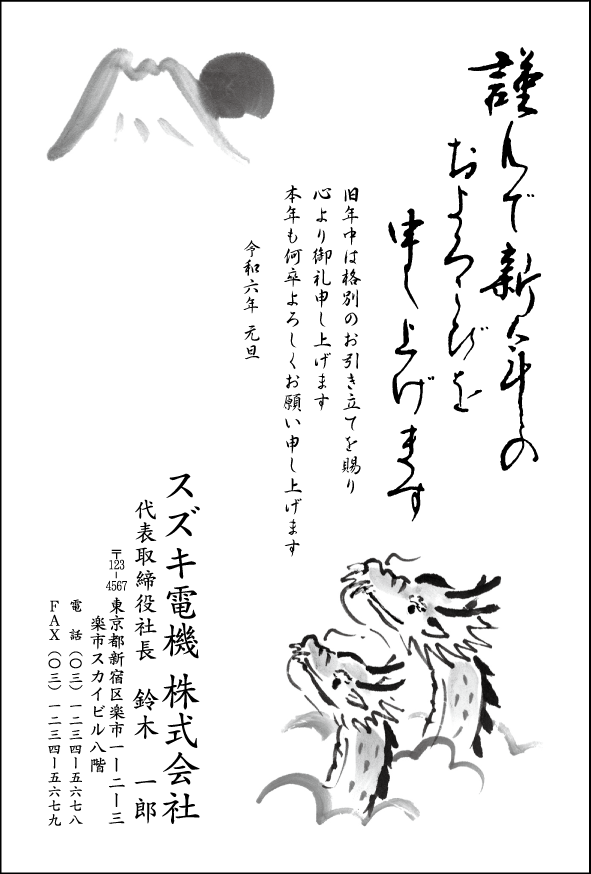 謹んで新年の
およろこびを
申し上げます
旧年中は格別のお引き立てを賜り
心より御礼申し上げます
本年も何卒よろしくお願い申し上げます
令和六年 元旦
スズキ電機 株式会社
代表取締役社長 鈴木 一郎
〒123-4567 東京都新宿区楽市一ー二ー三
楽市スカイビル八階
電 話（〇三）一二三四ー五六七八
ＦＡＸ（〇三）一二三四ー五六七九